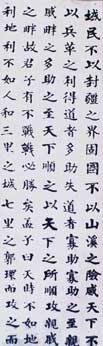 域民不以封疆之界固國不以山溪之險威天下不
以兵革之利得道者多助失道者寡助寡助之至親
戚畔之多助之至天下順之以天下之所順攻親戚
之所畔故君子有不戰戰必勝矣孟子曰天時不如地
利地利不如人和三里之城七里之郭環而攻之而